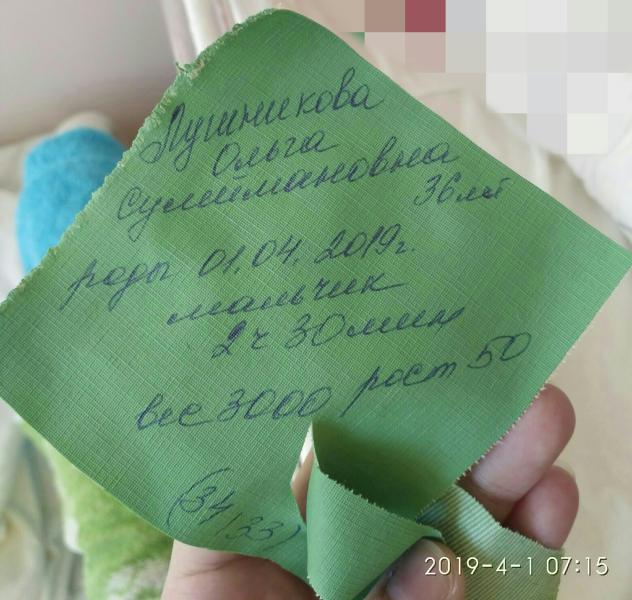 Лушникова
Ольга
Сулеймановна
36 лет
роды 01.04.2019г.
мальчик
2 ч 30 мин
вес 3000 рост 50
(34/33)
2019-4-1 07:15